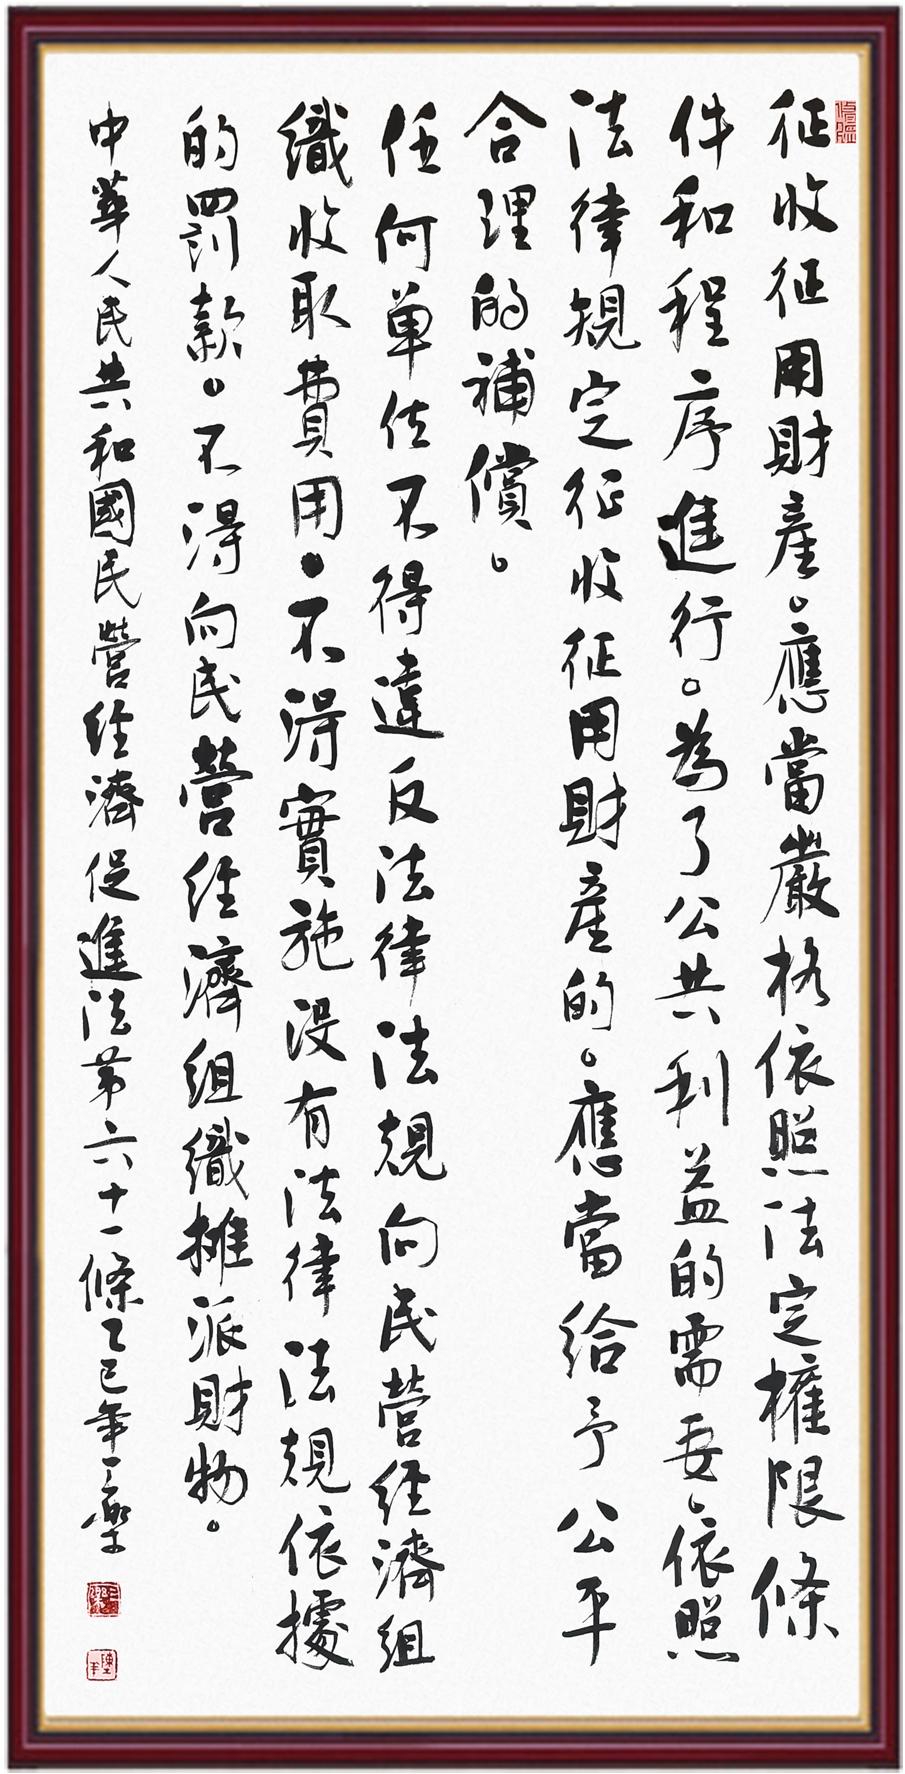 征收征用財產。應當嚴格依照法定權限條
件和程序進行。為了公共利益的需要、依照
法律規定征收征用財產的。應當給予公平
合理的補償。
任何單位不得違反法律法規向民營經濟組
織收取費用。不得實施沒有法律法規依據
的罰款。不得向民營經濟組織攤派財物。
中華人民共和國民營經濟促進法第六十一條乙巳年